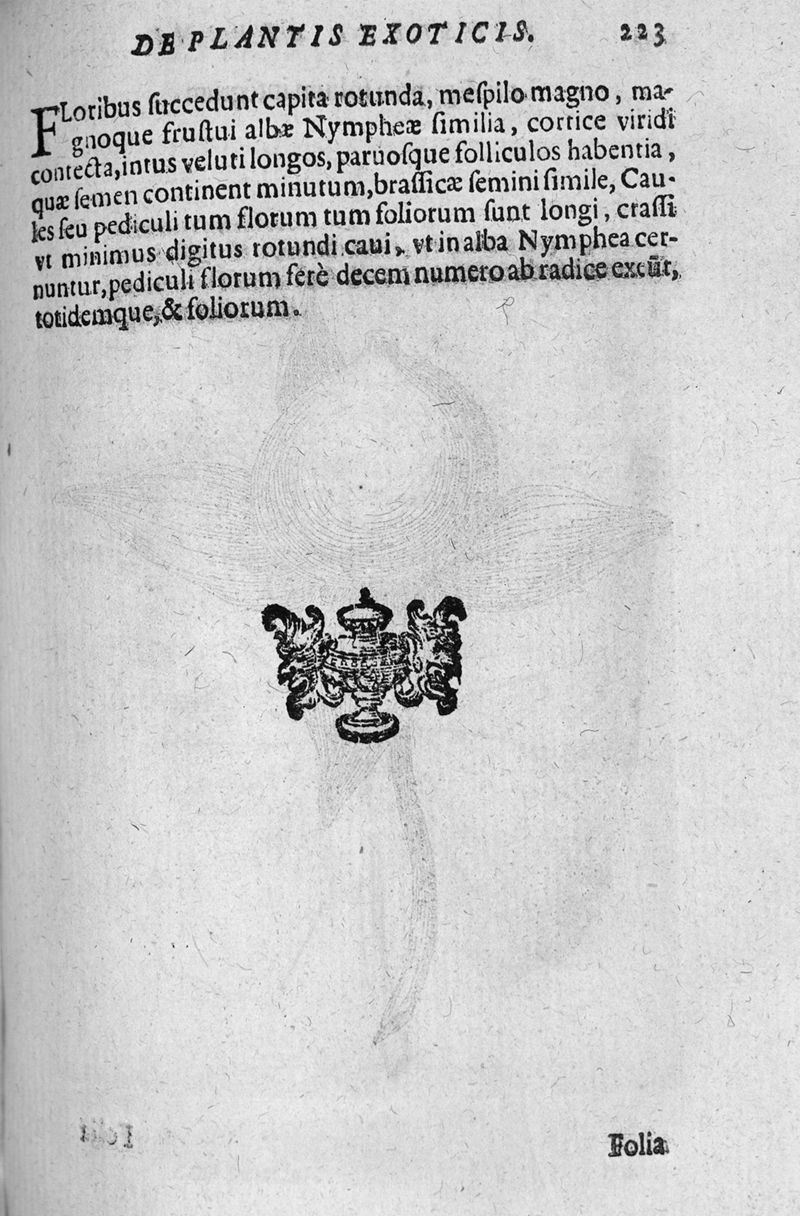 DE PLANTIS EXOTICIS. 223
FLoribus ſuccedunt capita rotunda, meſpilo magno, ma-
gnoque fruſtui albæ Nympheæ ſimilia, cortice viridi
contecta, intus veluti longos, paruoſque folliculos habentia,
quæ ſemen continent minutum, braſſicæ ſemini ſimile, Cau-
les ſeu pediculi tum florum tum foliorum ſunt longi, craſſi
vt minimus digitus rotundi caui, vt in alba Nymphea cer-
nuntur, pediculi florum ferè decem numero ab radice exeūt,
totidemque, & foliorum.
Folia